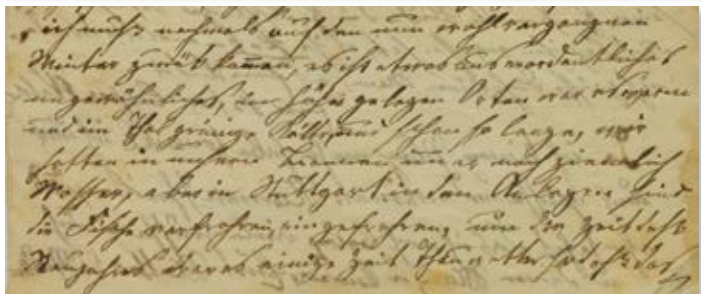 ich muß nochmals auf den nun wohl vergangnen
Winter zurük kommen, es ist etwas außerordentliches
ungewöhnliches, in höher gelegen Orten war es warm
und im Thal grimige Kälte, und schon so lange, wir
hatten in unsern Brunnen nur noch ziemlich
Wasser, aber in Stuttgart in den Anlagen sind
die Fische verfrohren, eingefrohren, um die Zeit deß
Neujahres war es einige Zeit Thauwetter so daß das